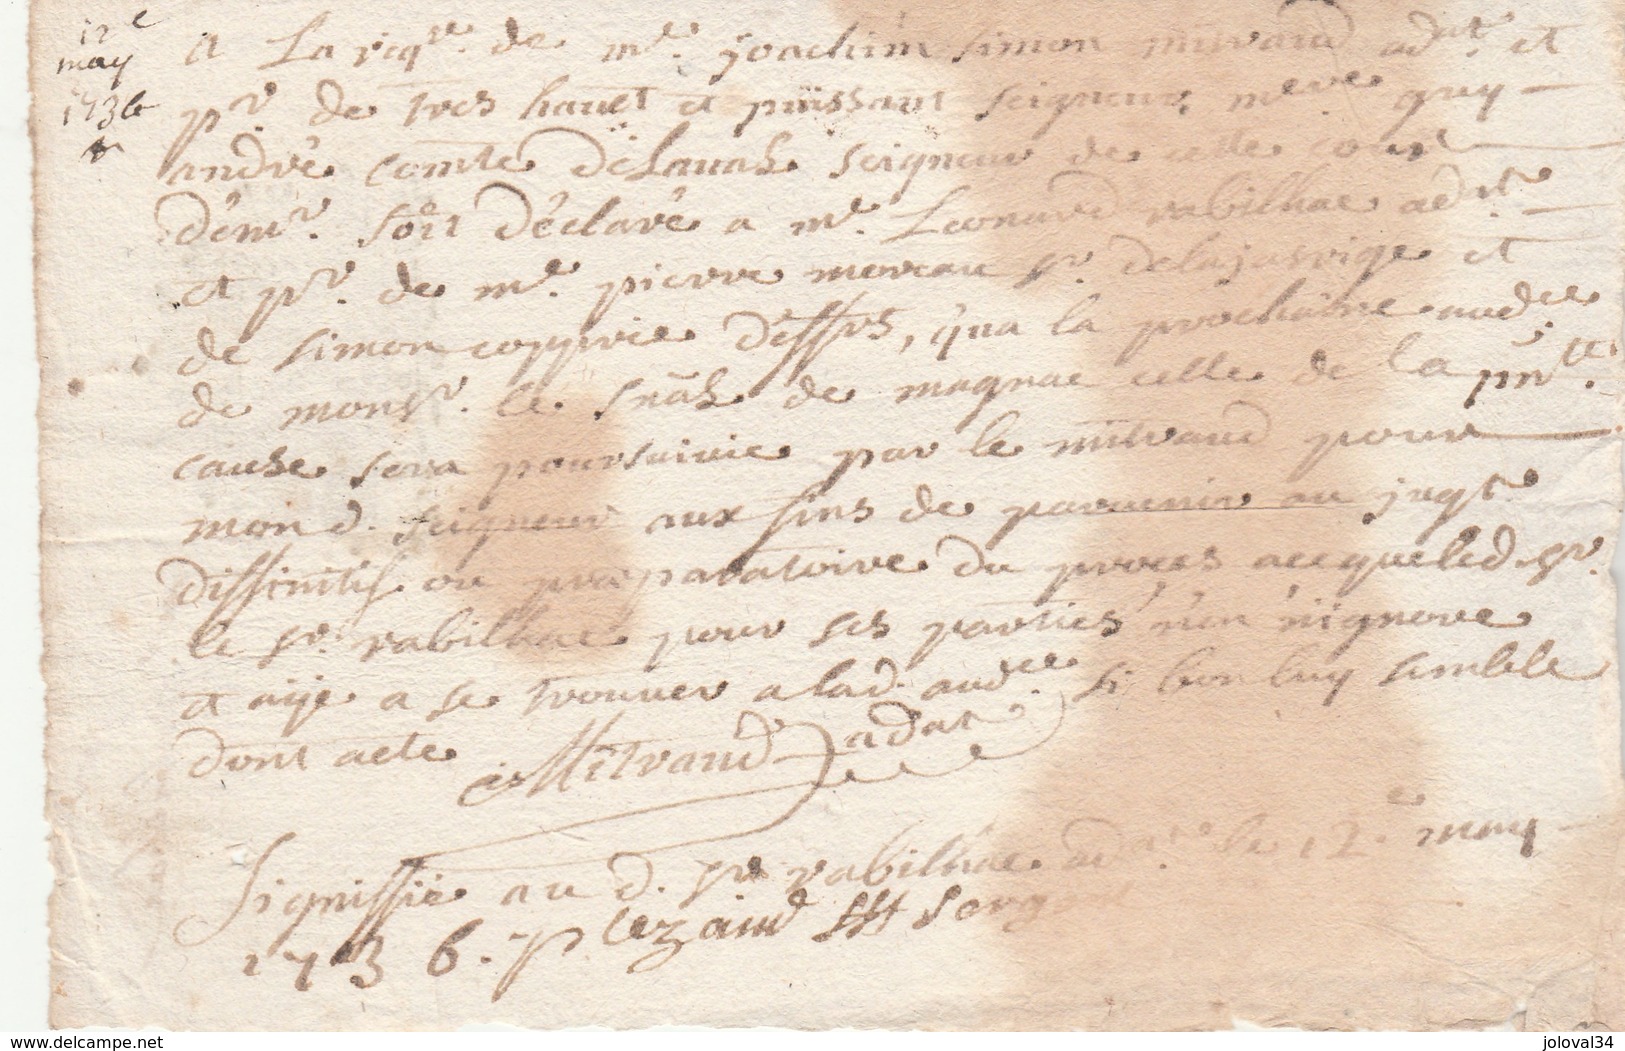 12e
may
1736
A La req.te de me. Joachim simon mitraud adat. et
pr. de tres hault et puissant seigneur, mere guy
andré comte Delaval seigneur de celle cour
démr. soit déclaré a me. Leonard rabilhac adat.
et pr. de me. pierre moreau sr. delajarrige et
de simon copprie deffrs, qua la prochaine audce.
de monsr. le snâl de magnac celle de la pnte.
cause sera poursuivie par le mitraud pour
mond. seigneur aux fins de parvenir au jugt
diffinitif ou preparatoire du proces acequeled. sr.
le sr. rabilhac pour ses parties n'en n'ignore
et aije a se trouver a lad. audce. si bon luy semble
dont acte Mitraud adat
Signiffié au d. sr rabilhac adat. le 12e may
1736. p sergent
www.delcampe.net
joloval34